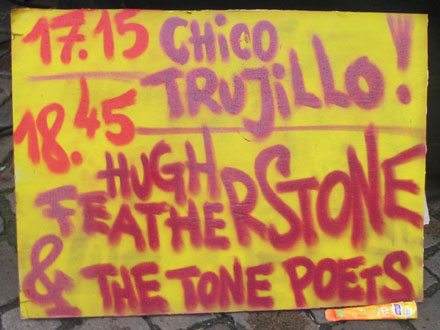 17.15 CHiCO
TRUJiLLO!
18.45
HUGH
FEATHERSTONE
& THE TONE POETS